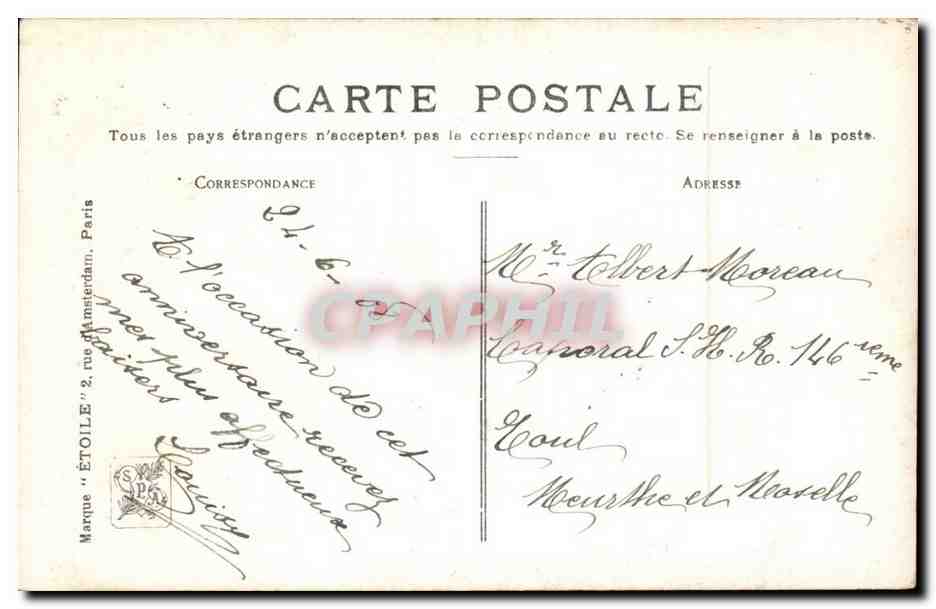 CARTE POSTALE
Tous les pays étrangers n'acceptent pas la correspondance au recto. Se renseigner à la poste.
CORRESPONDANCE
24-6-07
A l'occasion de cet
anniversaire recevez
mes plus affectueux
baisers
Louisy
ADRESSE
Mr Albert Moreau
Caporal S. H. R. 146eme
Toul
Meurthe et Moselle
Marque "ÉTOILE" 2, rue d'Amsterdam, Paris
S P A
CPAPHIL